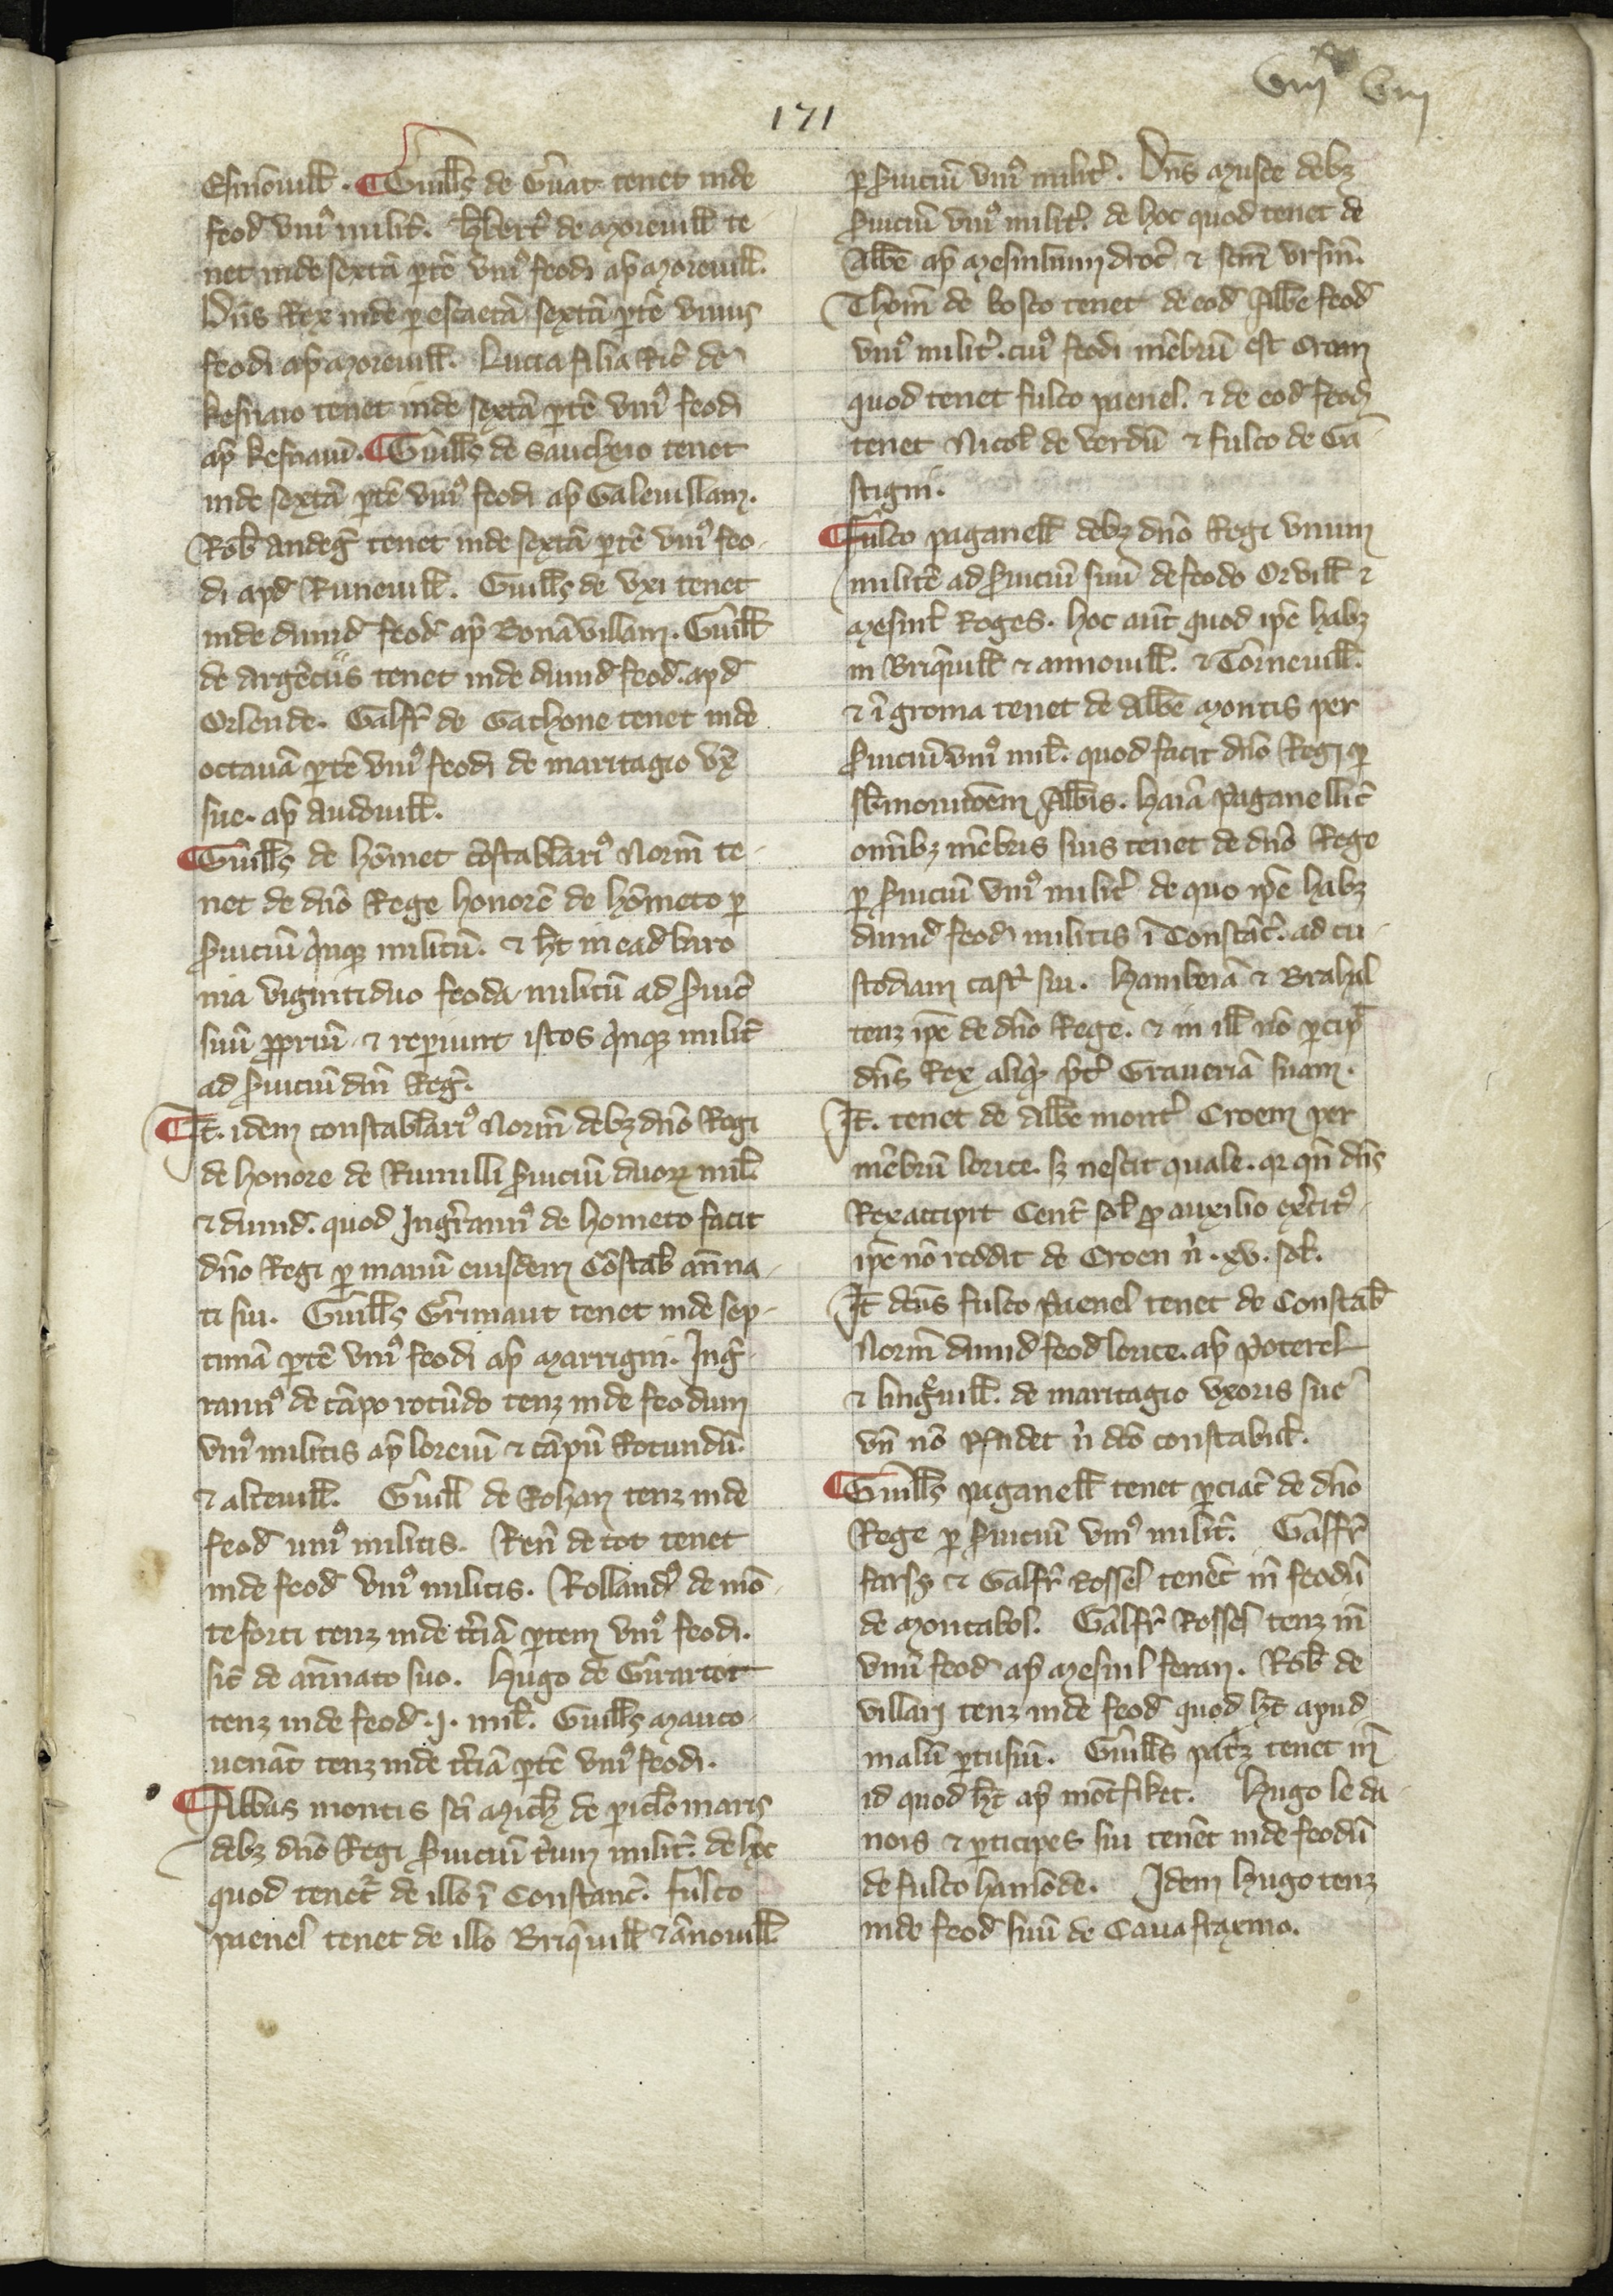 171
viiiˣˣ viii
Esmouill̄. ¶ Guill̄s de Gͥuat tenet inde
feod̄ vniꝰ milit̉. Hb̄ertꝰ de Moreuill̄ te
net inde sextā ꝑtē vniꝰ feodi ap̄ Moreuill̄.
Dn̄s Rex inde ꝑ escaetā sextā ꝑtē vnius
feodi ap̄ Moreuill̄. Lucia filia Ric̄ de
kesnaio tenet inde sextā ꝑtē vniꝰ feodi
ap̄ kesnaiū. ¶ Guill̄s de Saucheio tenet
inde sextā ꝑtē vniꝰ feodi ap̄ Galeuillam.
Rob̄ Andeg̉ tenet inde sextā ꝑtē vniꝰ feo
di apd̄ Runeuill̄. Guill̄s de Vxi tenet
inde dimid̄ feod̄ ap̄ Bonāvillam. Guill̄
de Argēciis tenet inde dimid̄ feod̄. apd̄
Orlende. Galfr̄ de Gathone tenet inde
octauā ꝑtē vniꝰ feodi de maritagio vx̄
sue. ap̄ Audouill̄.
¶ Guill̄s de hōmet cōstablariꝰ Norm̄ te
net de dn̄o Rege honorē de hōmeto ꝑ
ẜuiciū qͥnqꝫ militū. ⁊ hт̄ in ead̄ baro
nia viginti duo feoda militū ad ẜuic̄
suū ꝓpriū ⁊ reꝑiunt istos qͥnqꝫ milit̉
ad ẜuiciū dn̄i Reg̉.
¶ It̄. idem constablariꝰ Norm̄ debꝫ dn̄o Regi
de honore de Rumilli ẜuiciū duoꝝ mil̄.
⁊ dimid̄. quod Ingͬrannꝰ de Hometo facit
dn̄o Regi ꝑ manū eiusdem Cōstab̄ an̄na
ti sui. Guill̄s Gͥrimaut tenet inde sep
timā ꝑtē vniꝰ feodi ap̄ Marrigni. Ing̉
rannꝰ de cāpo rotūdo tenꝫ inde feodum
vniꝰ militis ap̄ loreiū ⁊ cāpū Rotundū.
⁊ alteuill̄. Guill̄ de Rohan tenꝫ inde
feod̄ uniꝰ militis. Ren̄ de tot tenet
inde feod̄ vniꝰ militis. Rollandꝰ de mō
teforti tenꝫ inde tc̄iā ꝑtem vniꝰ feodi.
sic̄ de an̄nato suo. Hugo de Gͥrartot
tenꝫ inde feod̄ .j. mil̄. Guill̄s Mauco
uenāt tenꝫ inde tc̄iā ꝑtē vniꝰ feodi.
¶ Abbas montis sc̄i Mich̄ de ꝑiclo maris
debꝫ dn̄o Regi ẜuiciū tͥum milit̉. de hoc
quod tenet̉ de illo ī Constanc̄. Fulco
paenel tenet de illo Briqͥuill̄ ⁊ ānouill̄
ꝑ ẜuiciū vniꝰ milit̉. Dn̄s Musce debꝫ
ẜuiciū vniꝰ milit̉. de hoc quod tenet de
Abb̄e ap̄ Mesnilium droc̄ ⁊ sc̄m vrsin̄.
Thom̄ de bosco tenet de eod̄ Abb̄e feod̄
vniꝰ milit̉. cuiꝰ feodi mēbrū est Croem
quod tenet fulco paenel. ⁊ de eod̄ feod̄
tenet Nicol̄ de Verdū ⁊ fulco de Ga
stigni.
¶ Fulco paganell̄ debꝫ dn̄o Regi vnum
militē ad ẜuiciū suū de feodo Orvill̄ ⁊
Mesnil̄ Roges. hoc aūt quod ip̄e habꝫ
in Briqͥuill̄ ⁊ annouill̄. ⁊ Torneuill̄.
⁊ ī groma tenet de Abb̄e Montis per
ẜuiciū vniꝰ mil̄. quod facit dn̄o Regi ꝑ
sb̄monic̄oem Abb̄is. Haiā paganelli c̄
omībꝫ mēbris suis tenet de dn̄o Rege
ꝑ ẜuiciū vniꝰ milit̉ de quo ip̄e habꝫ
dimid̄ feodi militis ī Constāc̄. ad cu
stodiam castr̉ sui. Hambeiā ⁊ Brahal
tenꝫ ip̄e de dn̄o Rege. ⁊ in ill̄ nō ꝑcip̉
dn̄s Rex aliqͥd p̄t̉ Graueriā suam.
It̄. tenet de Abb̄e mont̉ Croem per
mēbrū lorice. sꝫ nescit quale. qꝛ qn̄ dn̄s
Rex accipit Cent̉ sol̄ ꝓ auxilio exc̉itꝰ
ip̄e nō reddit de Croen n̉. xv. sol̄.
It̄ dc̄us fulco Paenel tenet de Constab̄
Norm̄ dimid̄ feod̄ lorice. ap̄ Poterel
⁊ lingͬuill̄. de maritagio vxoris sue
vn̄ nō r̄ndet n̉ dc̄o constabul̄.
¶ Guill̄s paganell̄ tenet ꝑciac̄ de dn̄o
Rege ꝑ ẜuiciū vniꝰ milit̉. Gaffr̄
farsi ⁊ Galfr̄ Rossel tenēt in̄ feodū
de Montabol. Galfr̄ Rossel tenꝫ in̄
vnū feod̄ ap̄ Mesnil feran. Rob̄ de
villari tenꝫ inde feod̄ quod hт̄ apud
malū ꝑtusiū. Guill̄s patꝫ tenet in̄
id quod hт̄ ap̄ mōtfiket. Hugo le da
nois ⁊ ꝑticipes sui tenēt inde feodū
de fulco hamōde. Idem Hugo tenꝫ
inde feod̄ suū de Caua fraxino.